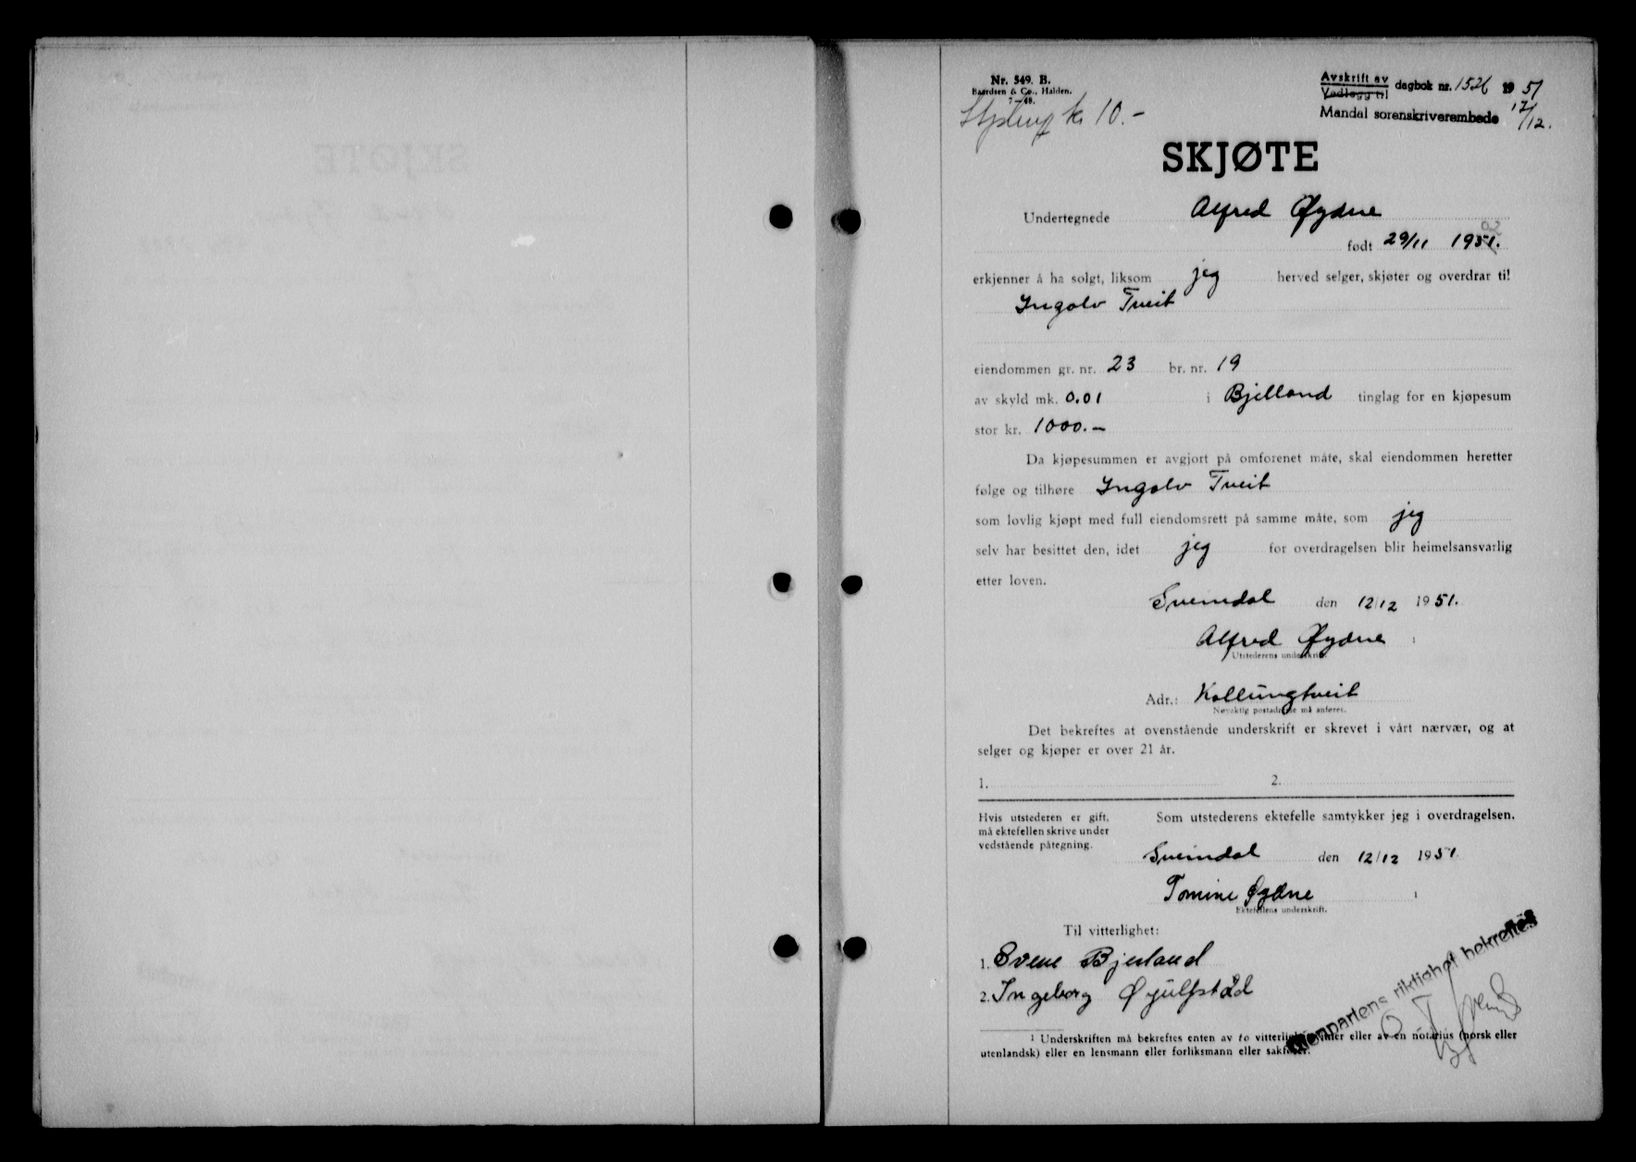 Nr. 549. B.
Baardsen & Co., Halden.
7–48.
kr 10.-
Avskrift av
Vedlegg til
dagbok nr. 1526 1951
Mandal sorenskriverembede 17/12.
SKJØTE
Undertegnede Alfred Øydne
født 29/11 1951.
erkjenner å ha solgt, liksom jeg herved selger, skjøter og overdrar til
Ingolv Tveit
eiendommen gr. nr. 23 br. nr. 19
av skyld mk. 0.01 i Bjelland tinglag for en kjøpesum
stor kr. 1000.—
Da kjøpesummen er avgjort på omforenet måte, skal eiendommen heretter
følge og tilhøre Ingolv Tveit
som lovlig kjøpt med full eiendomsrett på samme måte, som jeg
selv har besittet den, idet jeg for overdragelsen blir heimelsansvarlig
etter loven.
Sveindal den 12/12 1951.
Alfred Øydne 1
Utstederens underskrift.
Adr.: Kollungtveit
Nøyaktig postadresse må anføres.
Det bekreftes at ovenstående underskrift er skrevet i vårt nærvær, og at
selger og kjøper er over 21 år.
1. 2.
Hvis utstederen er gift,
må ektefellen skrive under
vedstående påtegning.
Som utstederens ektefelle samtykker jeg i overdragelsen.
Sveindal den 12/12 1951.
Tomine Øydne 1
Ektefellens underskrift.
Til vitterlighet:
1. Svene Bjerland
2. Ingeborg Øyulfstad
Gjenpartens riktighet bekreftes
1 Underskriften må bekreftes enten av to vitterlighetsvitner eller av en notarius (norsk eller
utenlandsk) eller en lensmann eller forliksmann eller sakfører.